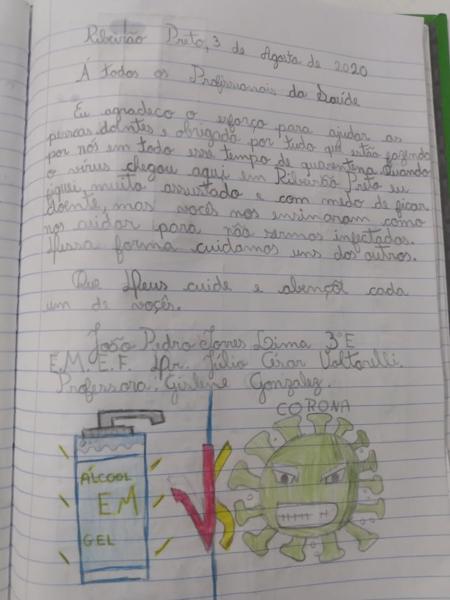 Ribeirão Preto, 3 de Agosto de 2020
Á todos os Profissionais da Saúde
Eu agradeço o esforço para ajudar as
pessoas doentes e obrigado por tudo que estão fazendo
por nós em todo esse tempo de quarentena. Quando
o vírus chegou aqui em Ribeirão Preto eu
fiquei muito assustado e com medo de ficar
doente, mas vocês nos ensinaram como
nos cuidar para não sermos infectados.
Dessa forma cuidamos uns dos outros.
Que Deus cuide e abençoi cada
um de voçês.
João Pedro Torres Lima 3°E
E.M.E.F. Dr. Júlio César Voltarelli.
Professora: Gisleine Gonzalez.
CORONA
ÁLCOOL
EM
GEL
VS